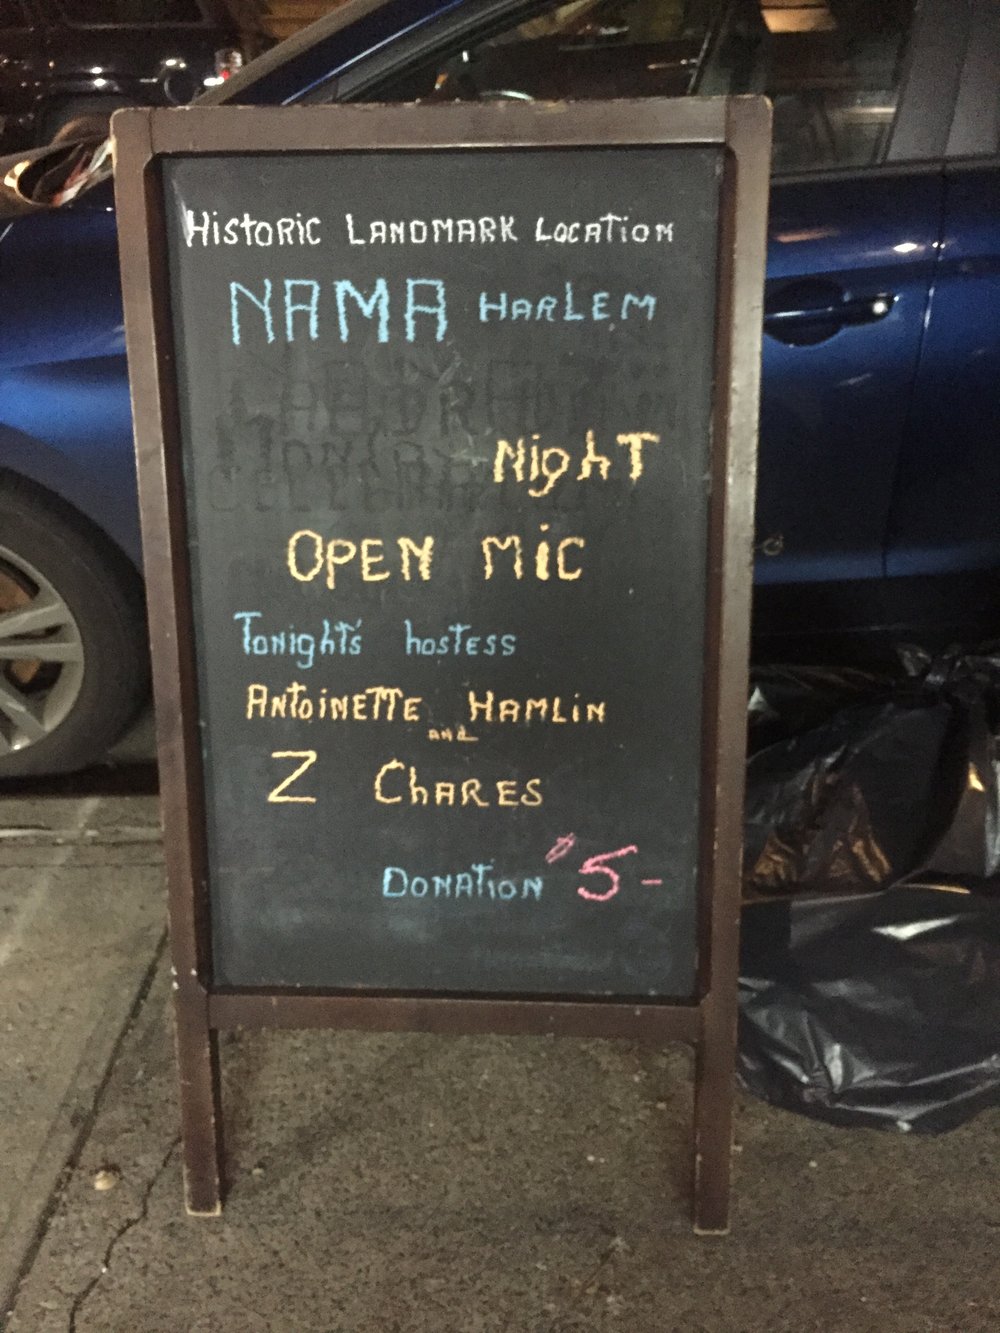 HistoRic LANDMARK LOCATiON
NAMA HARLEM
NighT
OPEN MiC
Tonight's hostess
ANtoiNETTE HAMLiN
AND
Z ChARES
DONATiON $5-